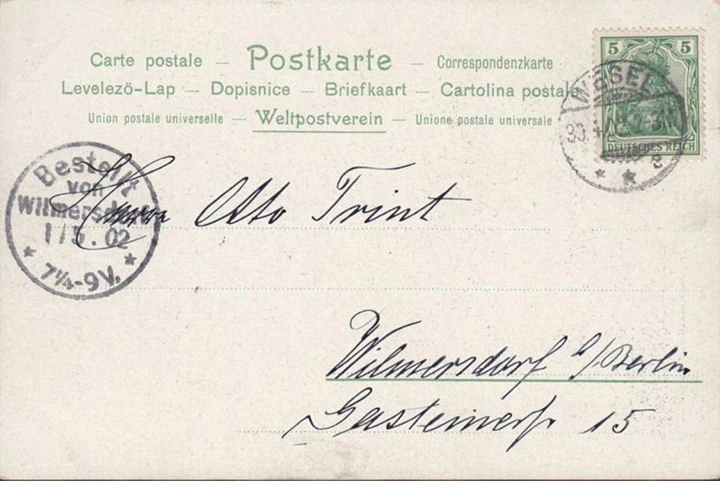 Carte postale – Postkarte – Correspondenzkarte
Levelezö-Lap – Dopisnice – Briefkaart – Cartolina postale
Union postale universelle – Weltpostverein – Unione postale universale
5 5
DEUTSCHES REICH
WESEL
30.4.
* * c
Bestellt
von
Wilmersdorf
1/5.02
* 7¼-9V. *
Herrn Otto Trint
Wilmersdorf b/Berlin
Gasteinerstr 15